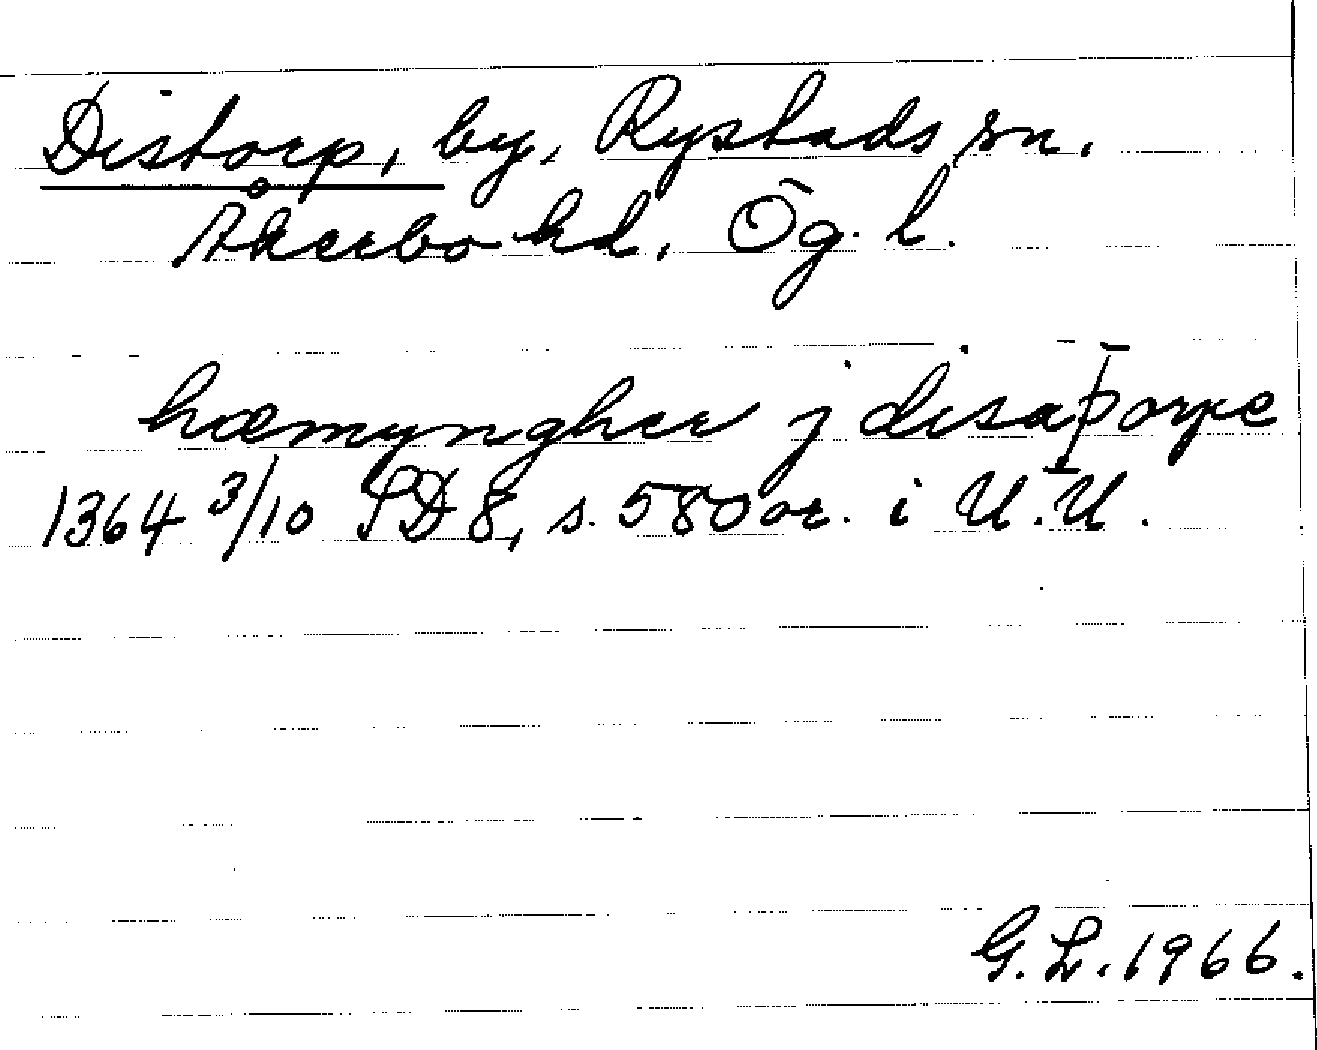 Distorp, by, Rystads sn.
Åkerbo hd. Ög. l.
hæmyngher j disaþorpe
1364 3/10 SD 8, s. 580 or. i U.U.
G.L. 1966.